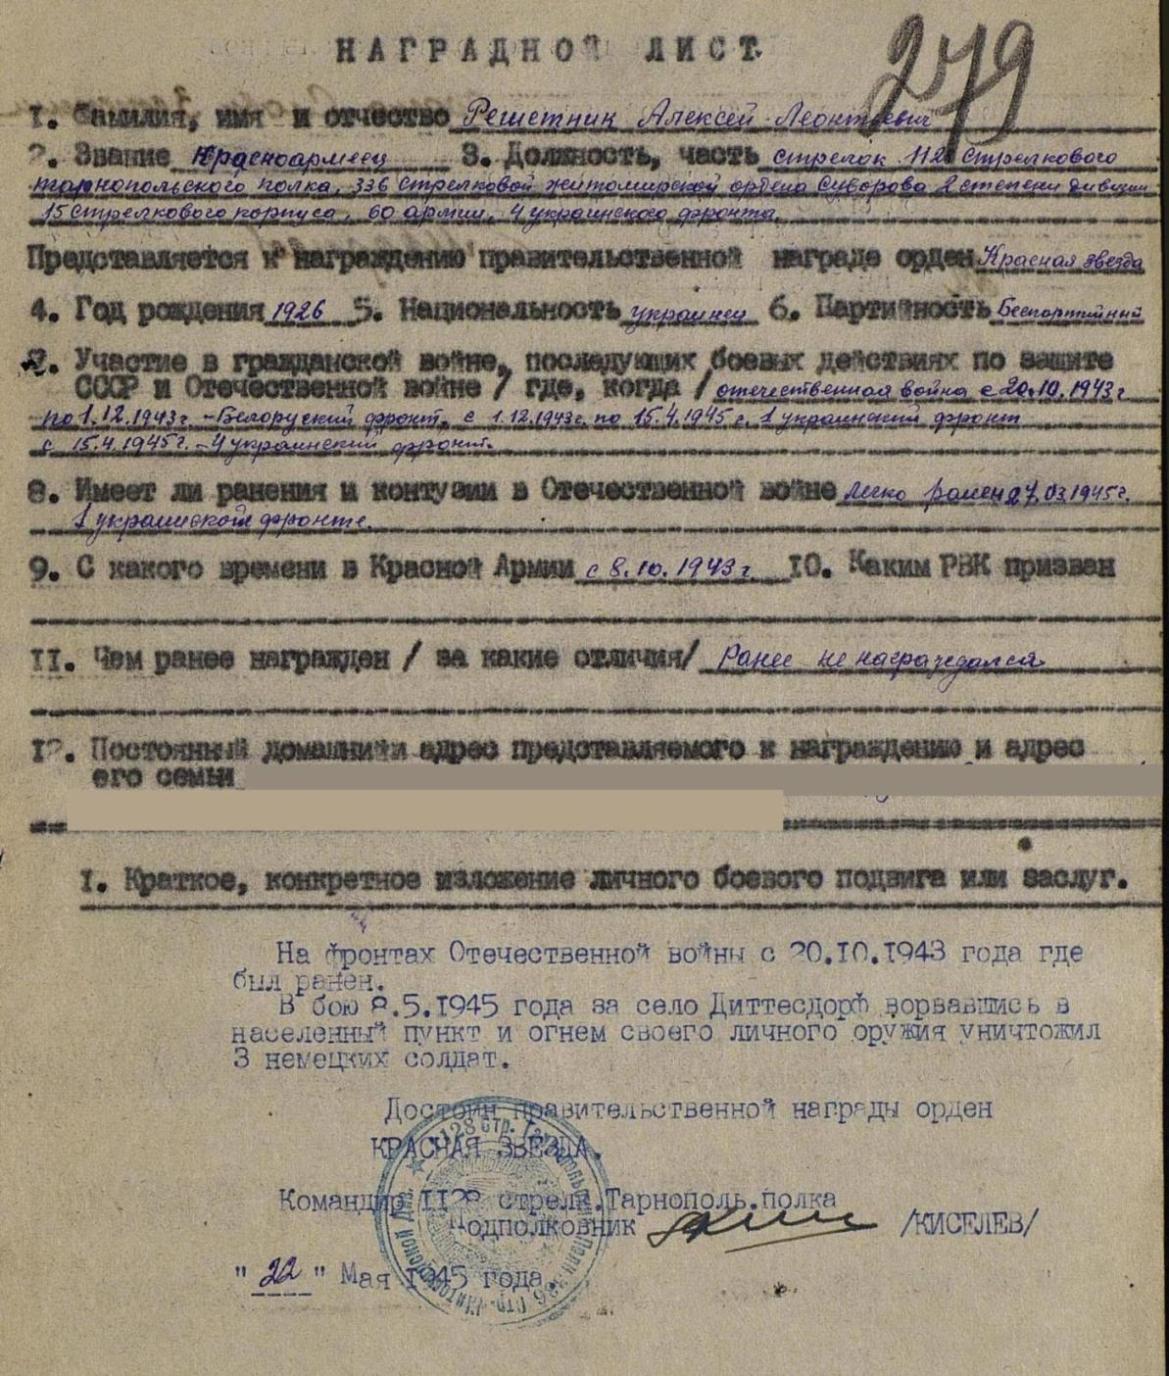 279
НАГРАДНОЙ ЛИСТ
1. Фамилия, имя и отчество Решетник Алексей Леонтиевич
2. Звание Красноармеец 3. Должность, часть стрелок 1128 стрелкового
тарнопольского полка, 336 стрелковой житомирской ордена Суворова 2 степени дивизии
15 стрелкового корпуса, 60 армии, 4 украинского фронта.
Представляется к награждению правительственной награде орден Красная звезда
4. Год рождения 1926 5. Национальность украинец 6. Партийность Беспартийный
7. Участие в гражданской войне, последующих боевых действиях по защите
СССР и Отечественной войне / где, когда / отечественная война с 20.10.1943г
по 1.12.1943г. - Белоруский фронт, с 1.12.1943г. по 15.4.1945 г. 1 украинский фронт
с 15.4.1945г. - 4 украинский фронт.
8. Имеет ли ранения и контузии в Отечественной войне легко ранен 27.03.1945г.
1 украинском фронте.
9. С какого времени в Красной Армии с 8.10.1943г 10. Каким РВК призван
11. Чем ранее награжден / за какие отличия/ Ранее не награждался
12. Постоянный домашний адрес представляемого к награждению и адрес
его семьи
I. Краткое, конкретное изложение личного боевого подвига или заслуг.
На фронтах Отечественной войны с 20.10.1943 года где
был ранен.
В бою 8.5.1945 года за село Диттесдорф ворвавшись в
населенный пункт и огнем своего личного оружия уничтожил
3 немецких солдат.
Достоин правительственной награды орден
КРАСНАЯ ЗВЕЗДА.
Командир 1128 стрелк.Тарнополь.полка
Подполковник /КИСЕЛЕВ/
"22" Мая 1945 года.